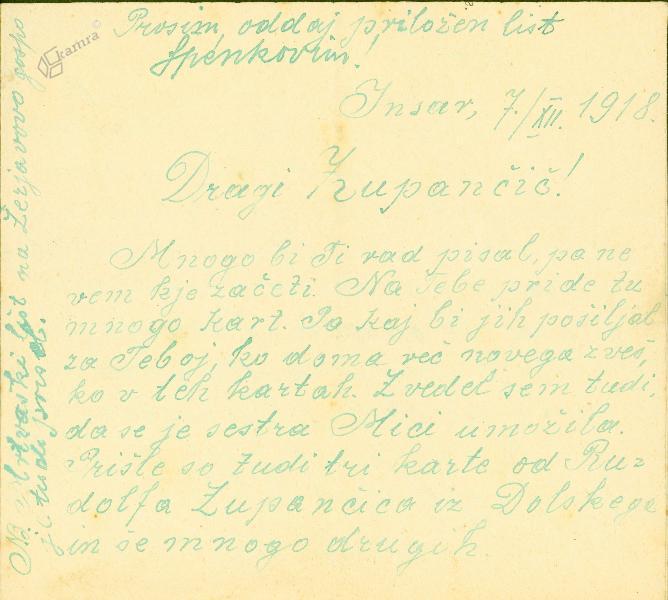 Prosim, oddaj priložen list
Špenkovim!
kamra
Insar, 7./XII. 1918.
Dragi Zupančič!
Mnogo bi Ti rad pisal, pa ne
vem kje začeti. Na Tebe pride tu
mnogo kart. Pa kaj bi jih pošiljal
za Teboj, ko doma več novega zveš,
ko v teh kartah. Zvedel sem tudi,
da se je sestra Mici umožila.
Prišle so tudi tri karte od Ru-
dolfa Zupančiča iz Dolskega
in še mnogo drugih.
Na list na Žerjavovo gospo
je tudi